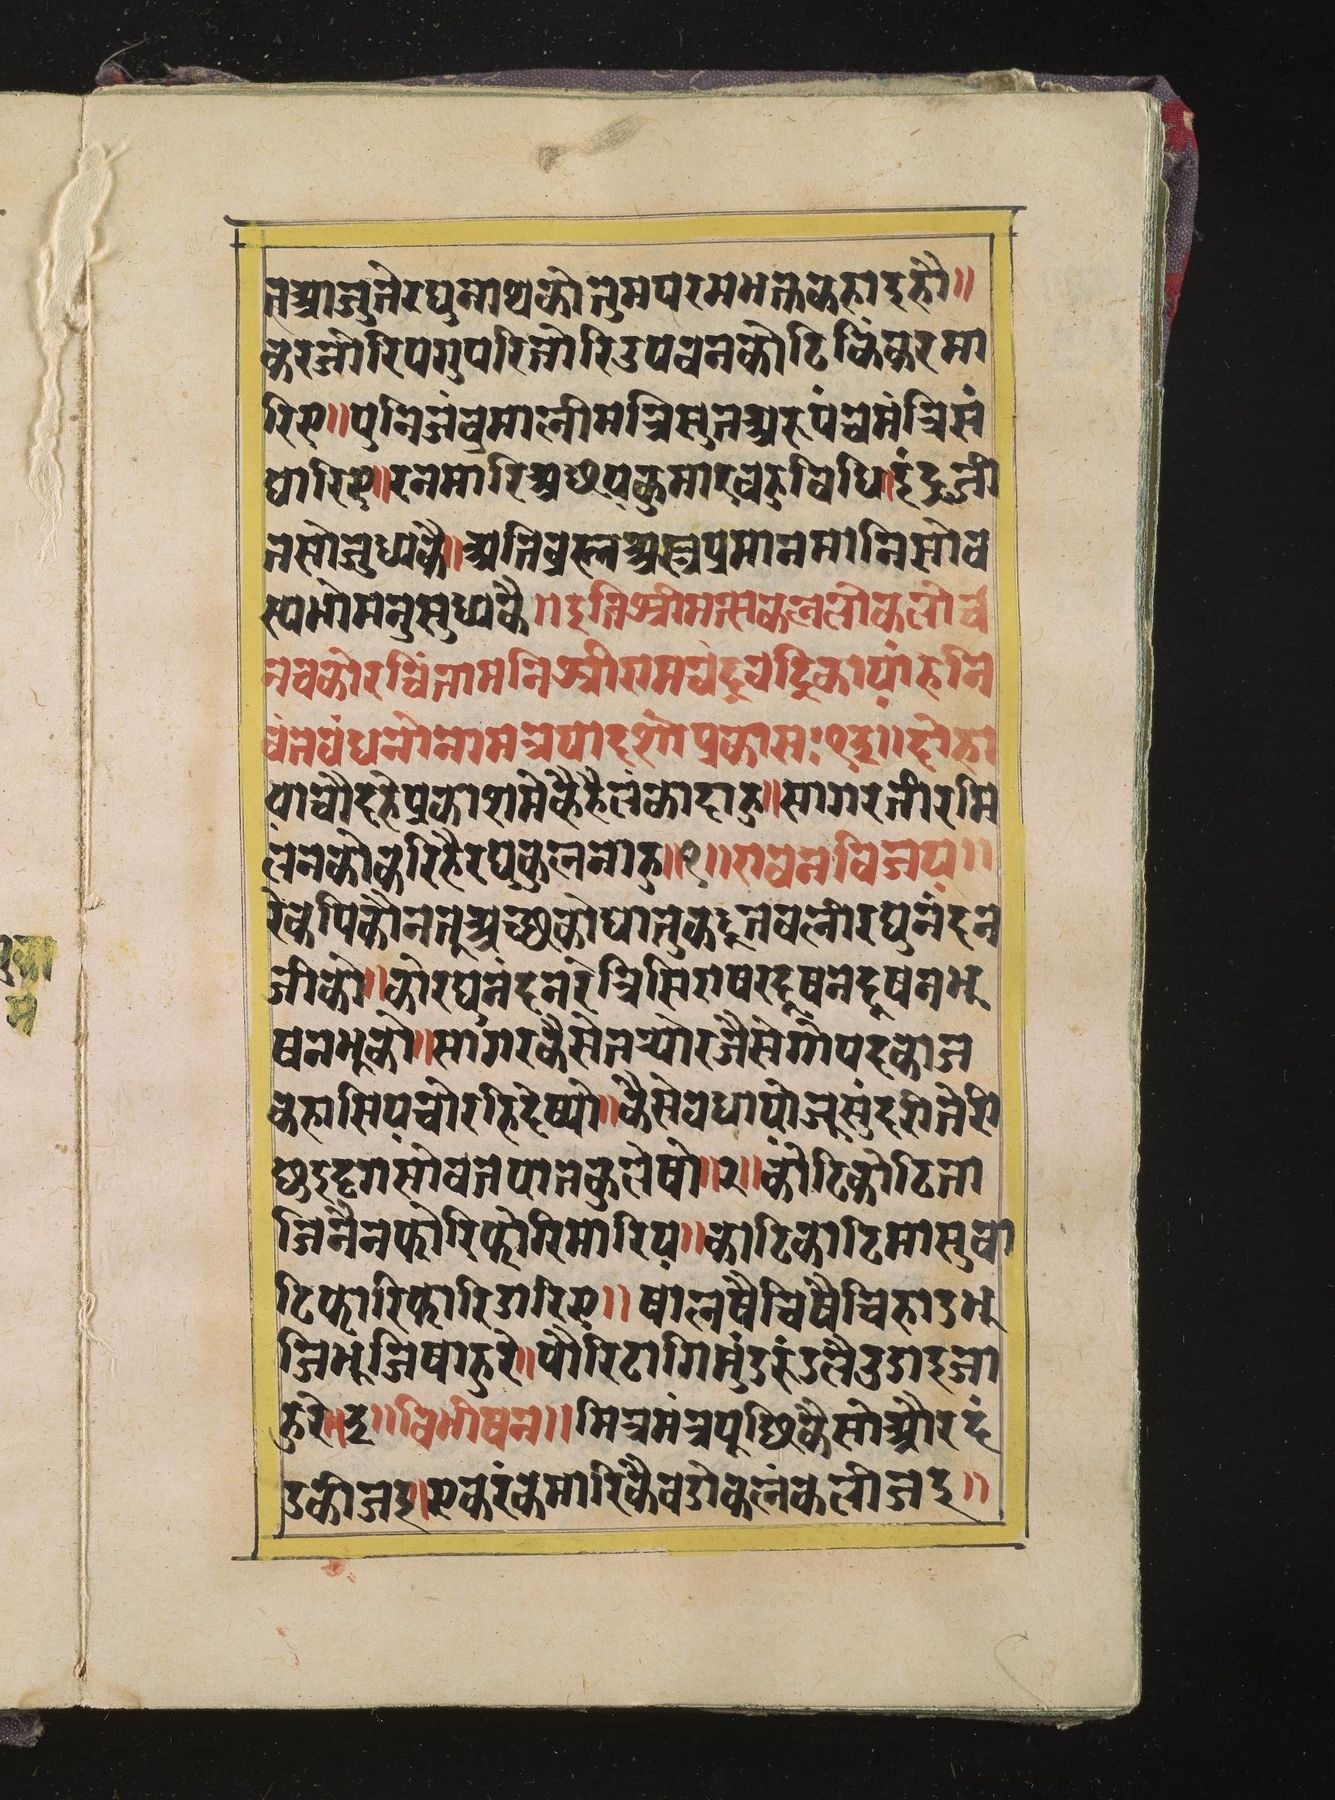 तआजुतेरघुनाथकोतुमपरमभक्तकहाइहौ॥
करजोरिपगुपरितोरिउपवनकोटिकिंकरमा
रिए॥पुनिजंवुमालीमंत्रिसुतअरुपंचमंत्रिसं
घारिए॥रनमारिअछयकुमारवहुविधि॥इंद्रजी
तसोजुध्यकै॥अतिव्रह्मअस्त्रप्रमानमानिसोव
स्यभोमनुसुध्यकै॥इतिश्रीमत्सकललोकलोच
नचकोरचिंतामनिश्रीरामचंद्रचंद्रिकायांहनि
वंतवंधनोनामत्रयोदशोप्रकासः१३॥दोहा
याचौदहेप्रकाशमेंव्हैहैलंकादाहु॥सागरतीरमि
लनकोकरिहैरघुकुलनाहु॥१॥रावनविजय॥
रेकपिकौनतूअच्छकोघातुकदूतवलीरघुनंदन
जीको॥कोरघुनंदनरेत्रिसिराषरदूषनदूषनभू
षनभूको॥सागरकैसेतर्‍यौरजैसेगोपदकाज
कहासियचोरहिदेष्यो॥कैसेवधायोजूसुंदरीतेरी
छुइदृगसोवतपातकुलेषो॥२॥कोटिकोटिता
जिनैनफोरिफोरिमारिए॥काटिकाटिमासुवा
टिफारिफारिडारिए॥षालषैचिषैचिहाडभू
जिभूजिषाहुरे॥पौरिटागिमुंडरुंडलैउडाइजा
हुरे॥३॥विभीषन॥मित्रमंत्रपूछिकैसोऔरदं
डकीजइ॥एकरंकमारिकैवडोकलंकलीजइ॥